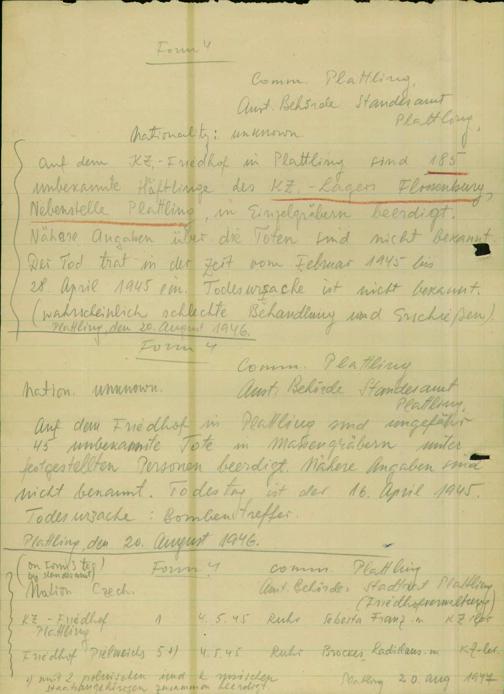 Form 4
Comm. Plattling,
Amt. Behörde Standesamt
Plattling,
Nationality: unknown
Auf dem KZ.-Friedhof in Plattling sind 185
unbekannte Häftlinge des KZ.-Lagers Flossenburg,
Nebenstelle Plattling, in Einzelgräbern beerdigt.
Nähere Angaben über die Toten sind nicht bekannt.
Der Tod trat in der Zeit vom Februar 1945 bis
28. April 1945 ein. Todesursache ist nicht bekannt.
(wahrscheinlich schlechte Behandlung und Erschießen)
Plattling, den 20. August 1946.
Form 4
Comm. Plattling
Nation. unknown.
Amt. Behörde Standesamt
Plattling,
Auf dem Friedhof in Plattling sind ungefähr
45 unbekannte Tote in Massengräbern unter
festgestellten Personen beerdigt. Nähere Angaben sind
nicht benannt. Todestag ist der 16. April 1945.
Todesursache: Bombentreffer.
Plattling, den 20. August 1946.
Form 4
comm. Plattling
Nation Czech.
Amt. Behörde: Stadtrat Plattling
(Friedhofverwaltung)
KZ-Friedhof 1 4.5.45 Ruhr Franz m
Plattling
Friedhof 5+) 4.5.45 Ruhr m KZ-ler
+) mit 2 polnischen und
Staatsangehörigen zusammen beerdigt
Plattling 20 Aug 1947